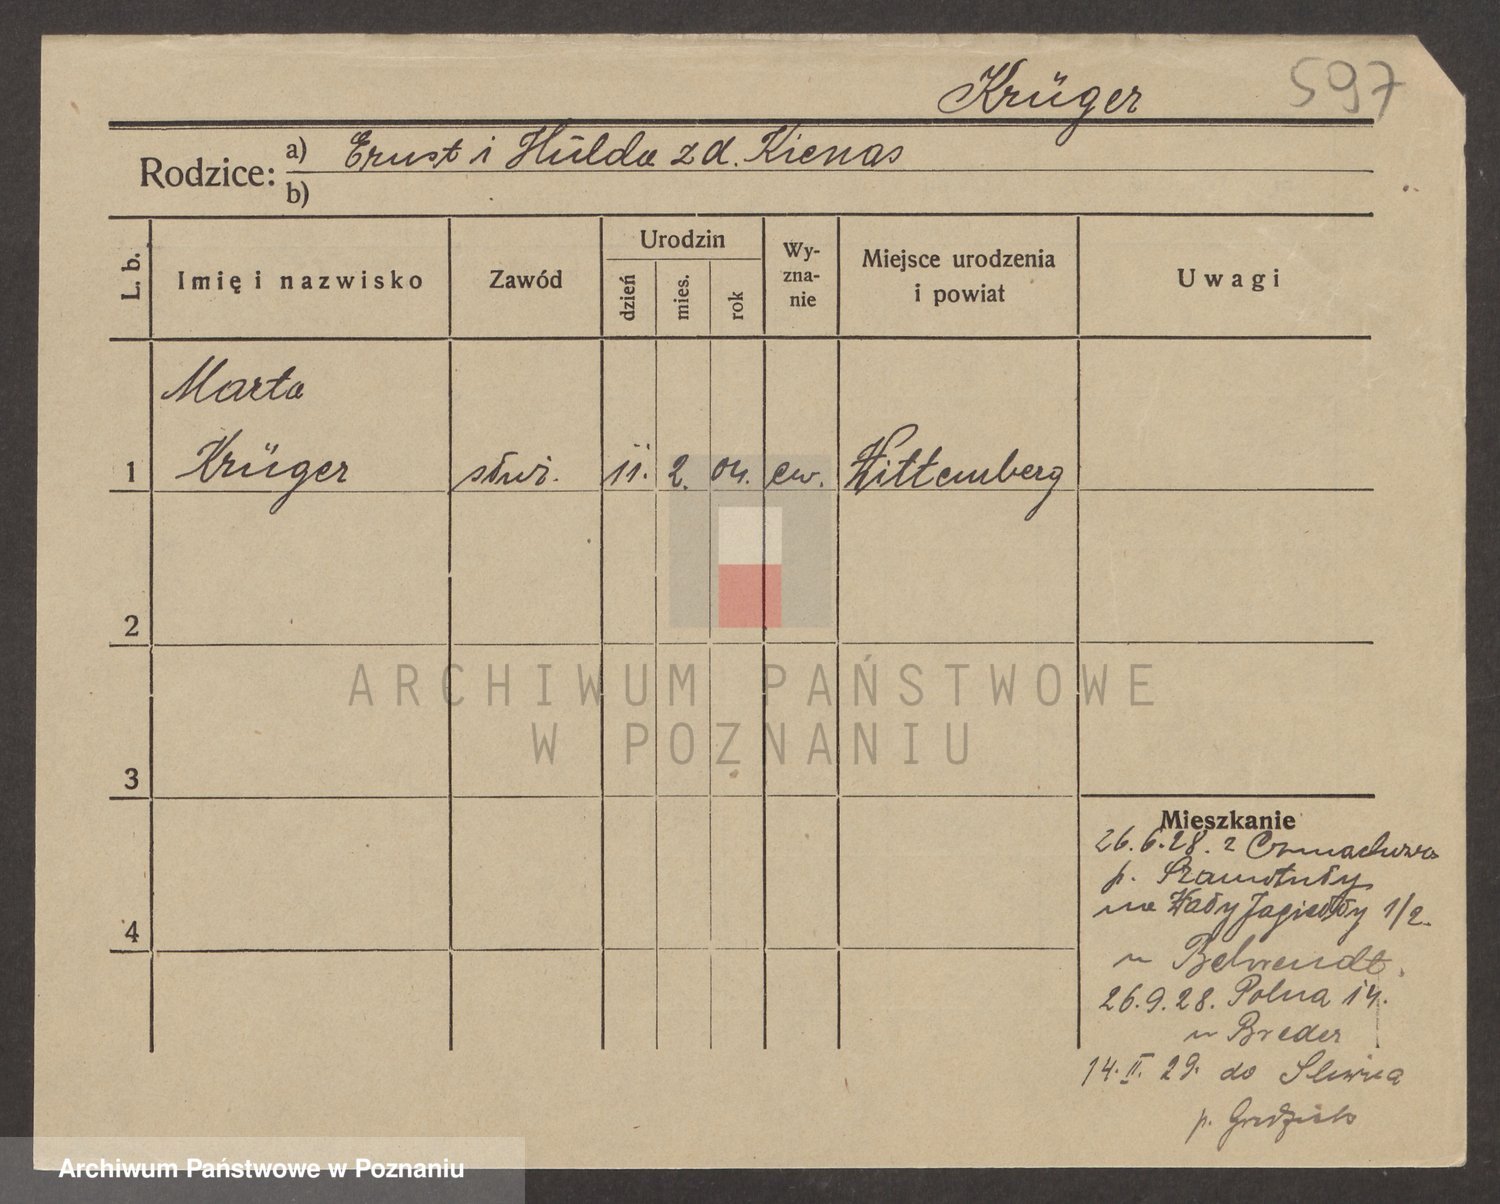 Krüger 597
Rodzice: a) Ernst i Hulda z d. Kienas
b)
L. b.
Imię i nazwisko
Zawód
Urodzin
dzień
mies.
rok
Wy-
zna-
nie
Miejsce urodzenia
i powiat
Uwagi
Marta
1 Krüger służ. 11. 2. 04. ew. Wittemberg
2
ARCHIWUM PAŃSTWOWE
W POZNANIU
3
4
Mieszkanie
26.6.28. z
p. Szamotuły
na Wały Jagiełły 1/2.
u Behrendt.
26.9.28. Polna 14.
u Breder
14.II.29. do Śliwna
p. Grodzisk
Archiwum Państwowe w Poznaniu